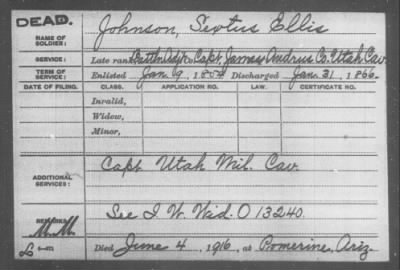 DEAD.
NAME OF SOLDIER:
Johnson, Sextus Ellis
SERVICE:
Late rank, Batln Adjt Co. Capt. James Andrus Co. Utah Cav.
TERM OF SERVICE:
Enlisted Jan. 9, 1854 Discharged Jan. 31, 1866.
DATE OF FILING. CLASS. APPLICATION NO. LAW. CERTIFICATE NO.
Invalid,
Widow,
Minor,
ADDITIONAL SERVICES:
Capt Utah Mil. Cav.
REMARKS:
See I. W. Wid. O 13240.
M.M.
Died June 4, 1916, at Pomerine, Ariz.